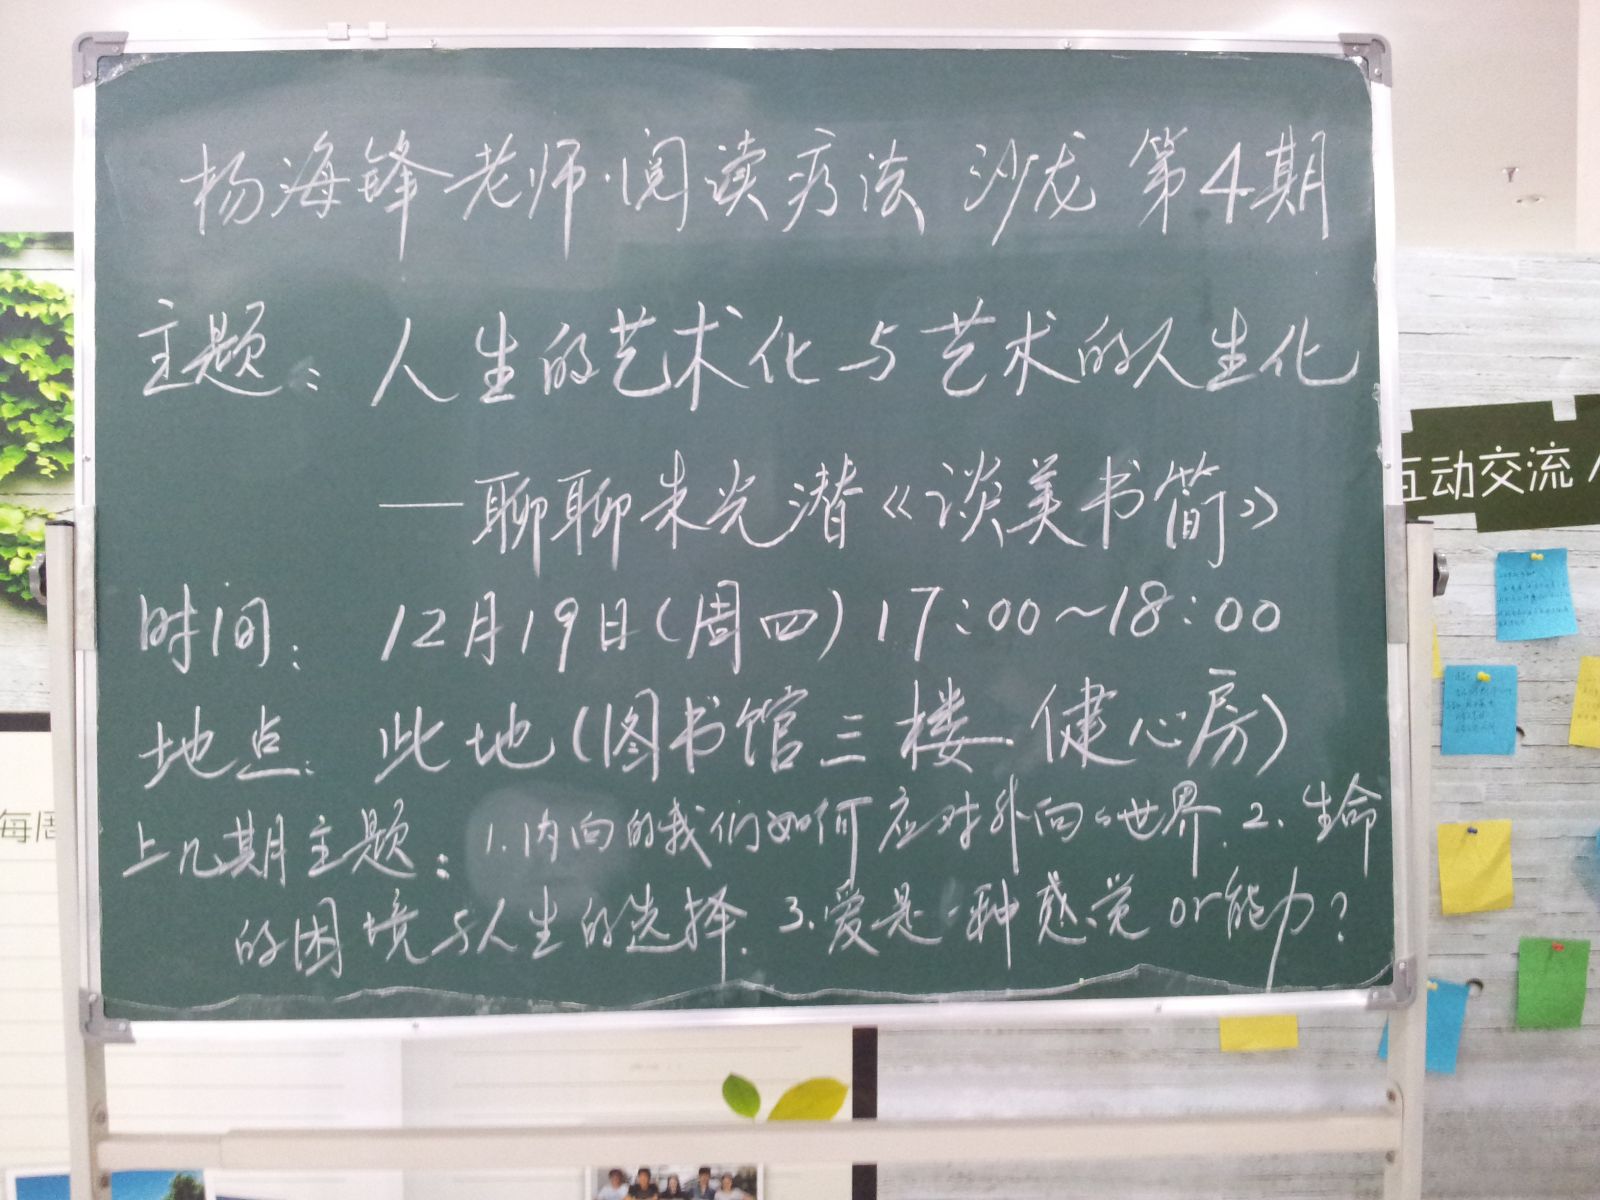 杨海锋老师·阅读疗法 沙龙 第4期
主题：人生的艺术化与艺术的人生化
——聊聊朱光潜《谈美书简》
时间：12月19日(周四)17:00~18:00
地点：此地(图书馆三楼 健心房)
上几期主题：1.内向的我们如何应对外向的世界.2.生命
的困境与人生的选择.3.爱是一种感觉or能力？
互动交流
每周